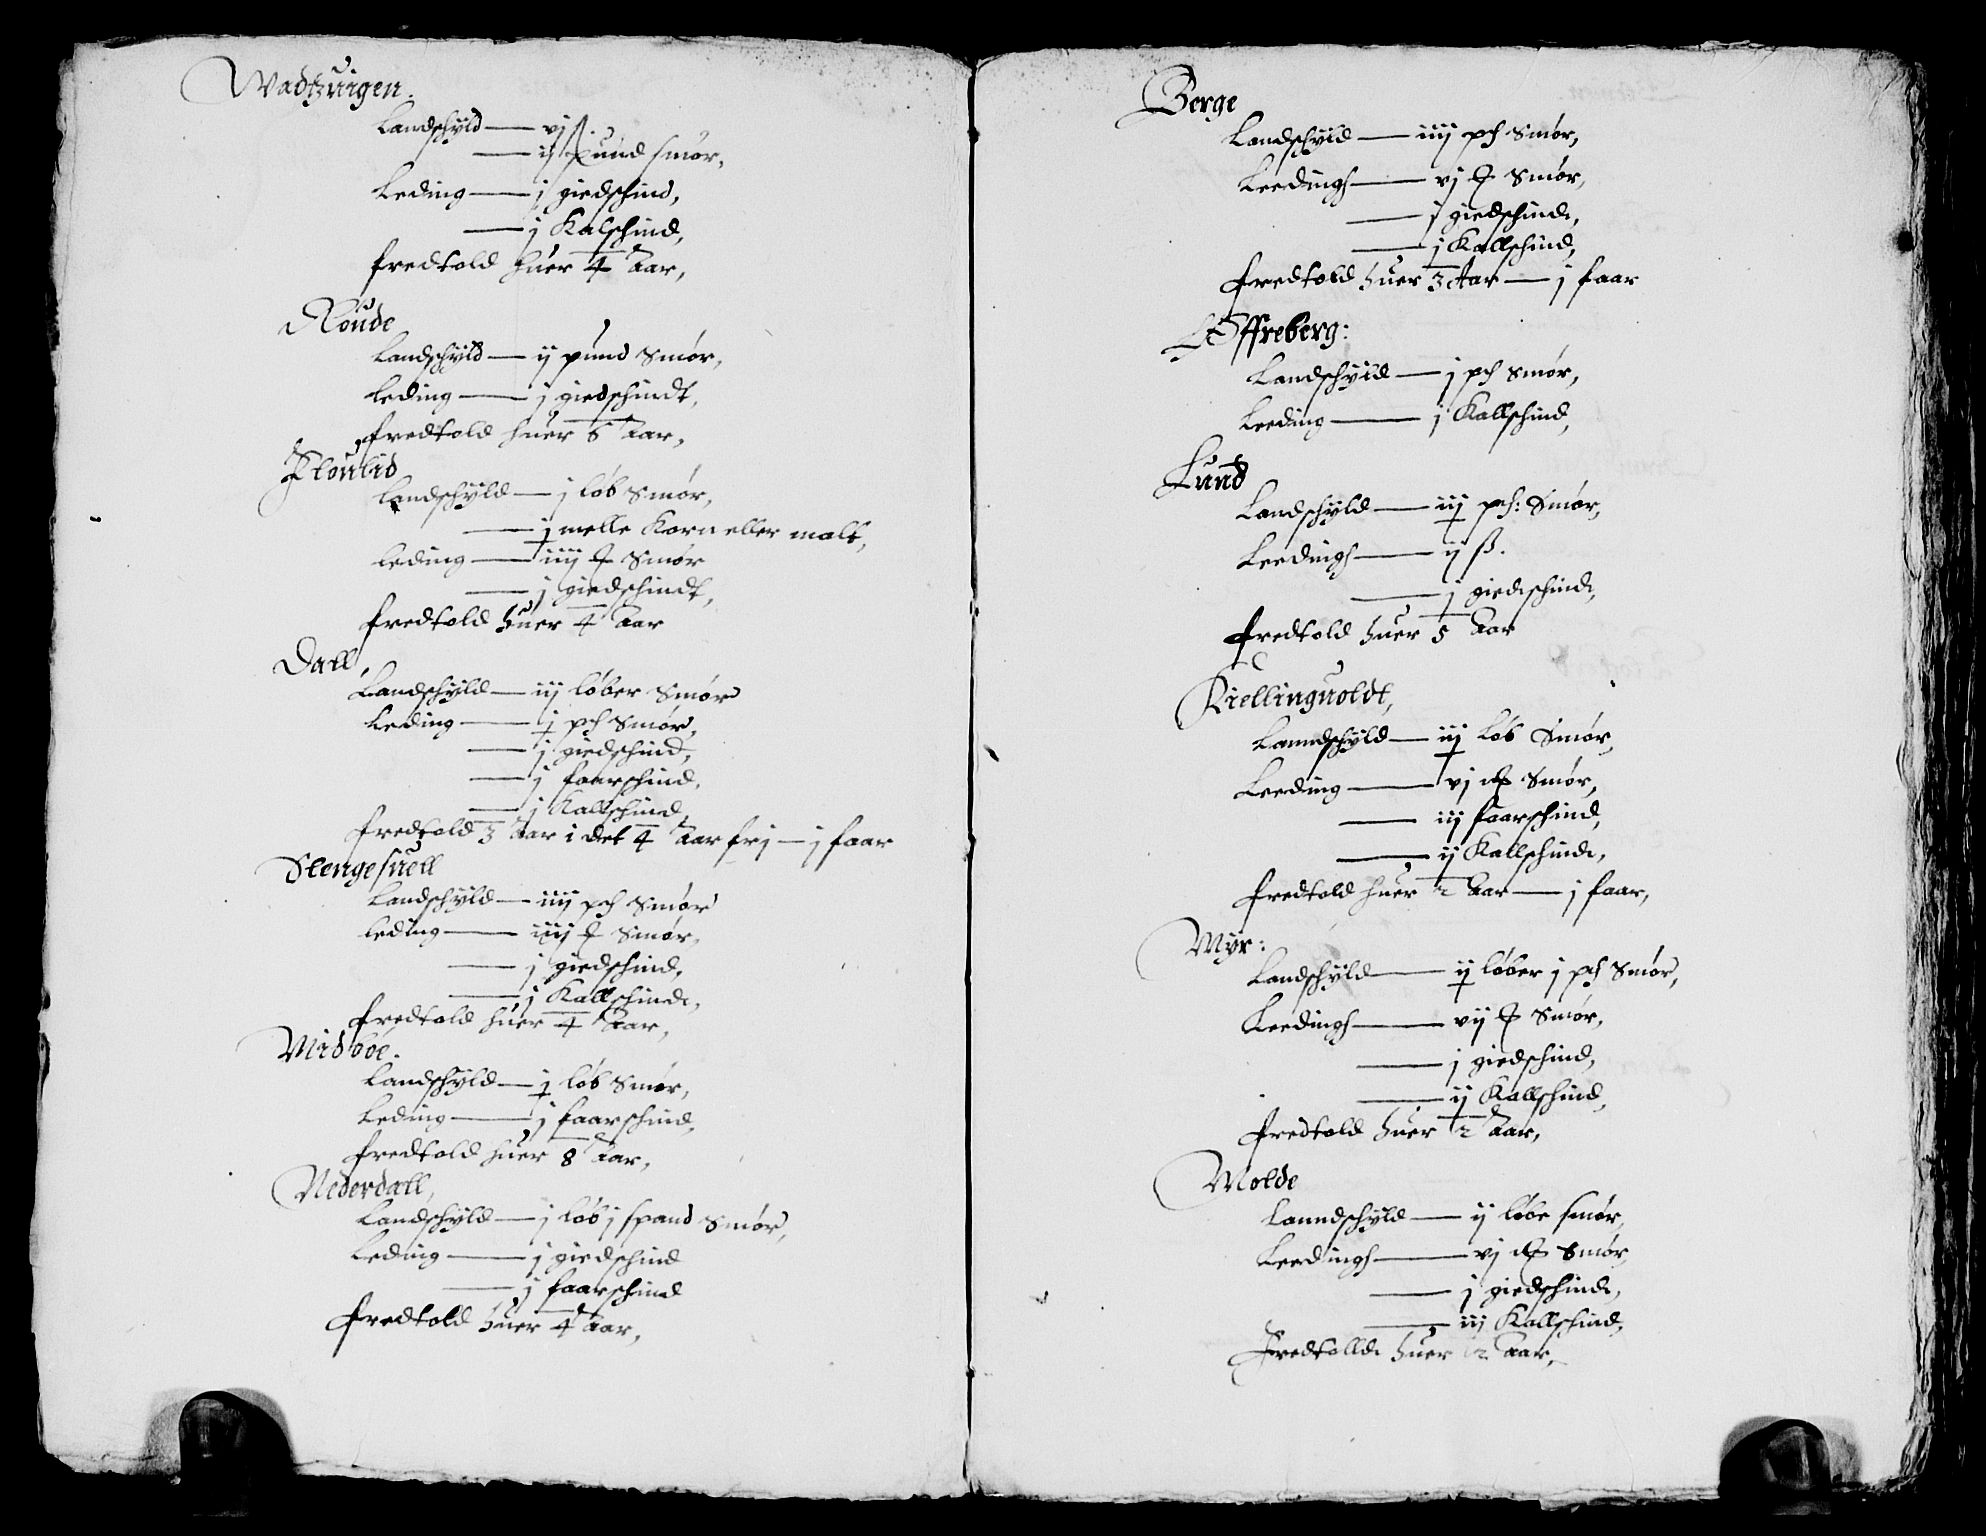 Wadtzuigen.
Landschyld — vj ß.
— ij pund smør,
Leding — j giedschind,
— j Kalschind,
fredtold huer 4 Aar,
Røude
Landschyld — ij pund Smør,
Leding — j giedschindt,
fredtold huer 6 Aar,
Flonlid
Landschyld — j løb Smør,
— j melle Korn eller malt,
leding — iiij ℔ Smør
— j giedschindt,
fredtold huer 4 Aar
Dall,
Landschyld — iij løber Smør
Leding — j pd Smør,
— j giedschind,
— j faarschind,
— j Kallschind,
fredtold 3 Aar i det 4 Aar frj — j faar
Stengesuell
Landschyld — iiij pd Smør
leding — iiij ℔ Smør,
— j giedschind,
— j Kallschindt,
fredtold huer 4 Aar,
Midboe.
Landschyld — j løb Smør,
Leding — j faarschind,
fredtold huer 8 Aar,
Nederdall,
Landschyld — j løb j spand Smør,
Leding — j giedschind
— j faarschind
fredtold huer 4 Aar,
Berge
Landschyld — iiij pd Smør,
Leedings — vj ℔ Smør,
— j giedschind,
— j Kallschind,
fredtold huer 3 Aar — j faar
Offreberg:
Landschyld — j pd Smør,
Leeding — j Kallschind,
Lund
Landschyld — iij pd: Smør,
Leedings — ij ß.
— j giedschind,
fredtold huer 5 Aar
Kiellinguoldt,
Lanndschyld — iij løb Smør,
Leeding — vj ℔ Smør,
— iij faarschind,
— ij Kallschind,
fredtold huer 2 Aar — j faar,
Myr:
Landschyld — ij løber j pd Smør,
Leedings — vij ℔ Smør,
— j giedschind,
— ij Kallschind,
fredtold huer 2 Aar,
Molde
Lanndschyld — ij løbe smør,
Leedings — vj ℔ Smør,
— j giedschind,
— iij Kallschind,
Fredtolld huer 2 Aar,